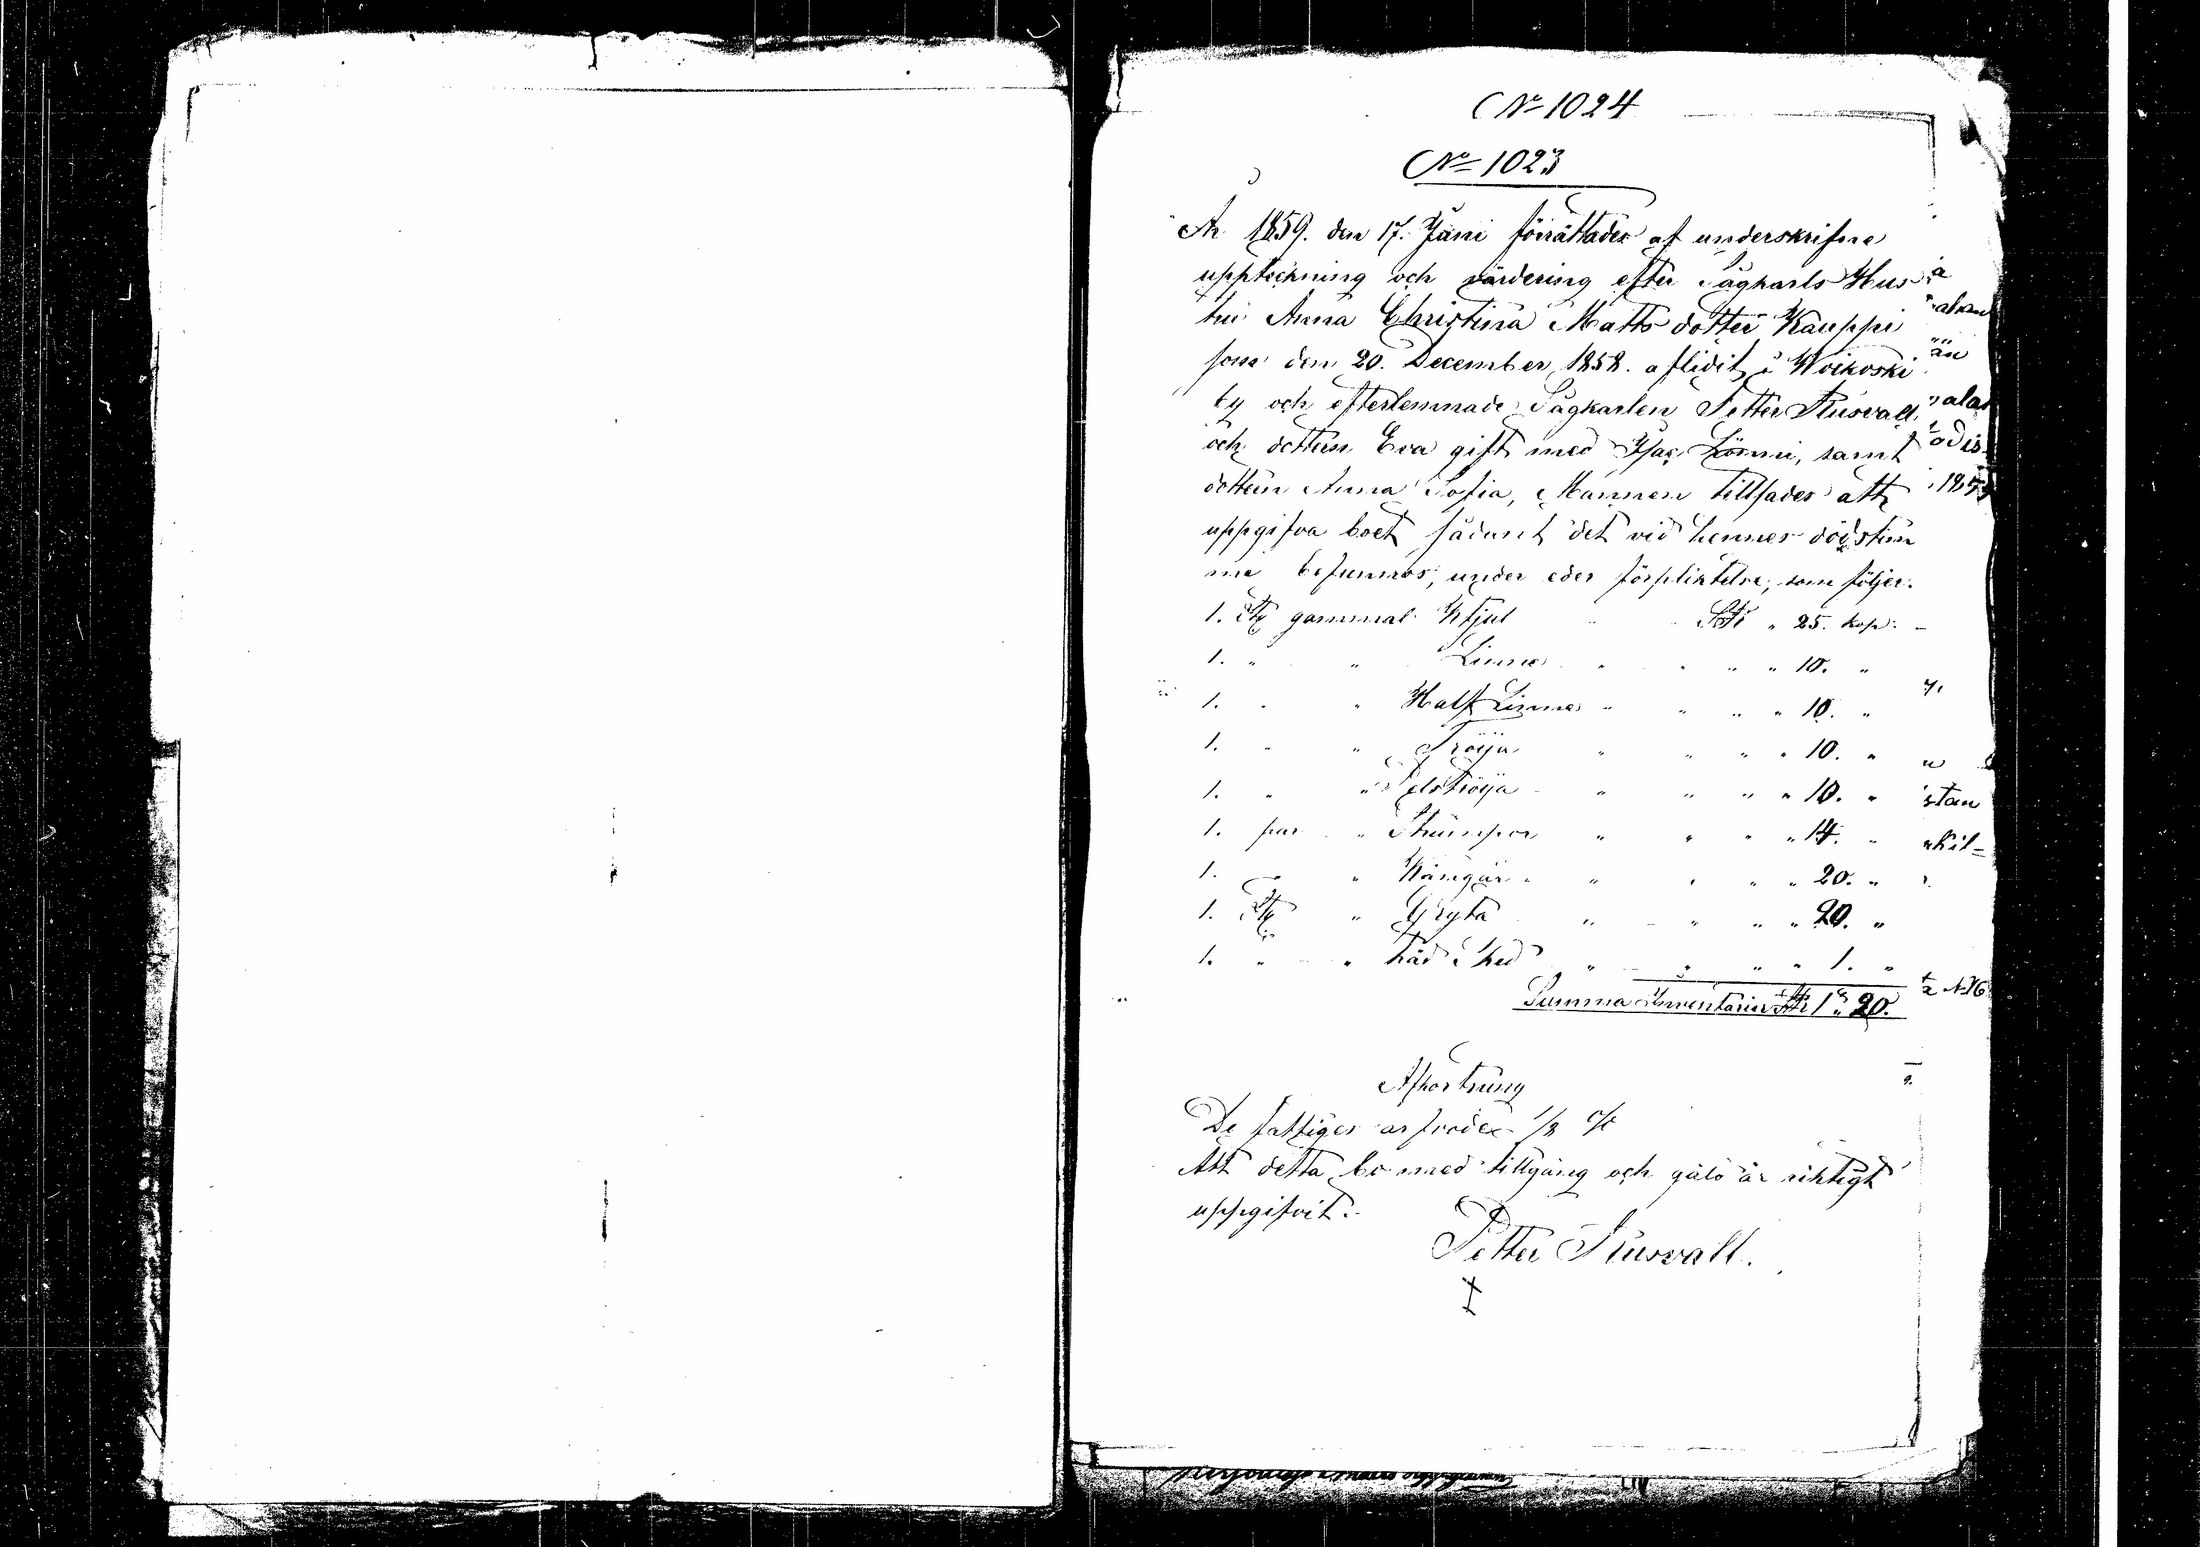 No 1024
No 1023
År 1859. den 17. Juni förrättades af underskrifne
uppteckning och värdering efter Sågkarls Hus-
tru Anna Christina Matts dotter Kauppi
som den 20. December 1858. aflidit i Woikoski
by och efterlemnade Sågkarlen Petter
och dottern Eva gift med Isac samt
dottern Anna Sofia, Mannen tillsades att
uppgifva boet sådant det vid hennes dödstim
me befunnos, under eder förpliktelse, som följer.
1. St. gammal Kjul SRu " 25. kop: -
1. " " Linne " " " " 10. "
1. " " Half Linne " " " " 10. "
1. " " Tröija " " " " 10. "
1. " " Pelströija " " " " 10. "
1. par " Strumpor " " " " 14. "
1. " " Kängär " " " " 20. "
1. St. " Gryta " " " " 20. "
1. " " Sked " " " " 1. "
Summa Inventarier SRu 1 " 20.
Afkortning
De fattiges 1/8 %
Att detta bo med tillgång och gäld är riktigt
uppgifvit.
Petter